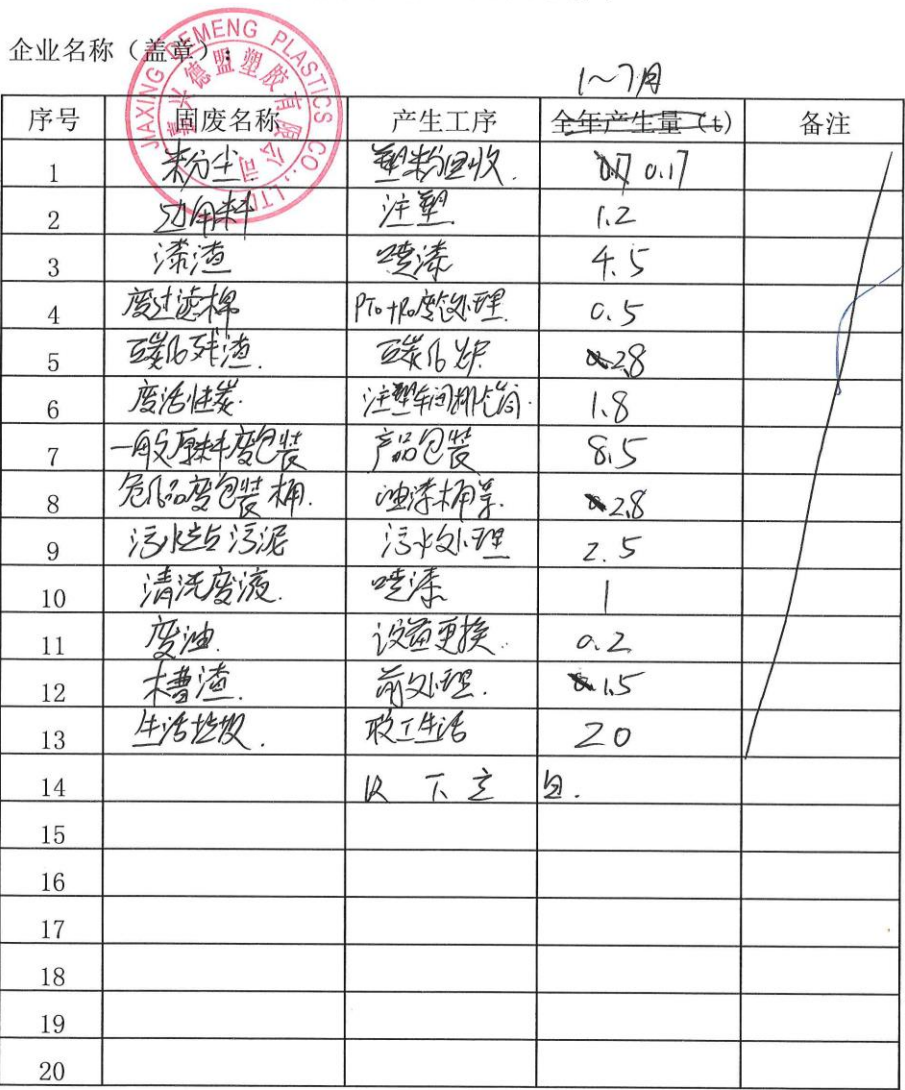 企业名称（盖章）：
JIAXING DEMENG PLASTICS CO., LTD
嘉兴德盟塑胶有限公司
1～7月
序号 固废名称 产生工序 全年产生量（t） 备注
1 粉尘 塑粉回收. 0.17 0.17
2 边角料 注塑 1.2
3 漆渣 喷漆 4.5
4 废过滤棉 废气处理. 0.5
5 碳化残渣 碳化炉 2.8
6 废活性炭. 注塑车间排气筒. 1.8
7 一般原料废包装 产品包装 8.5
8 危化品废包装桶. 油漆桶等. 2.8
9 污水站污泥 污水处理 2.5
10 清洗废液. 喷漆 1
11 废油. 设备更换. 0.2
12 槽渣. 前处理. 1.5
13 生活垃圾. 职工生活 20
14 以下空白.
15
16
17
18
19
20